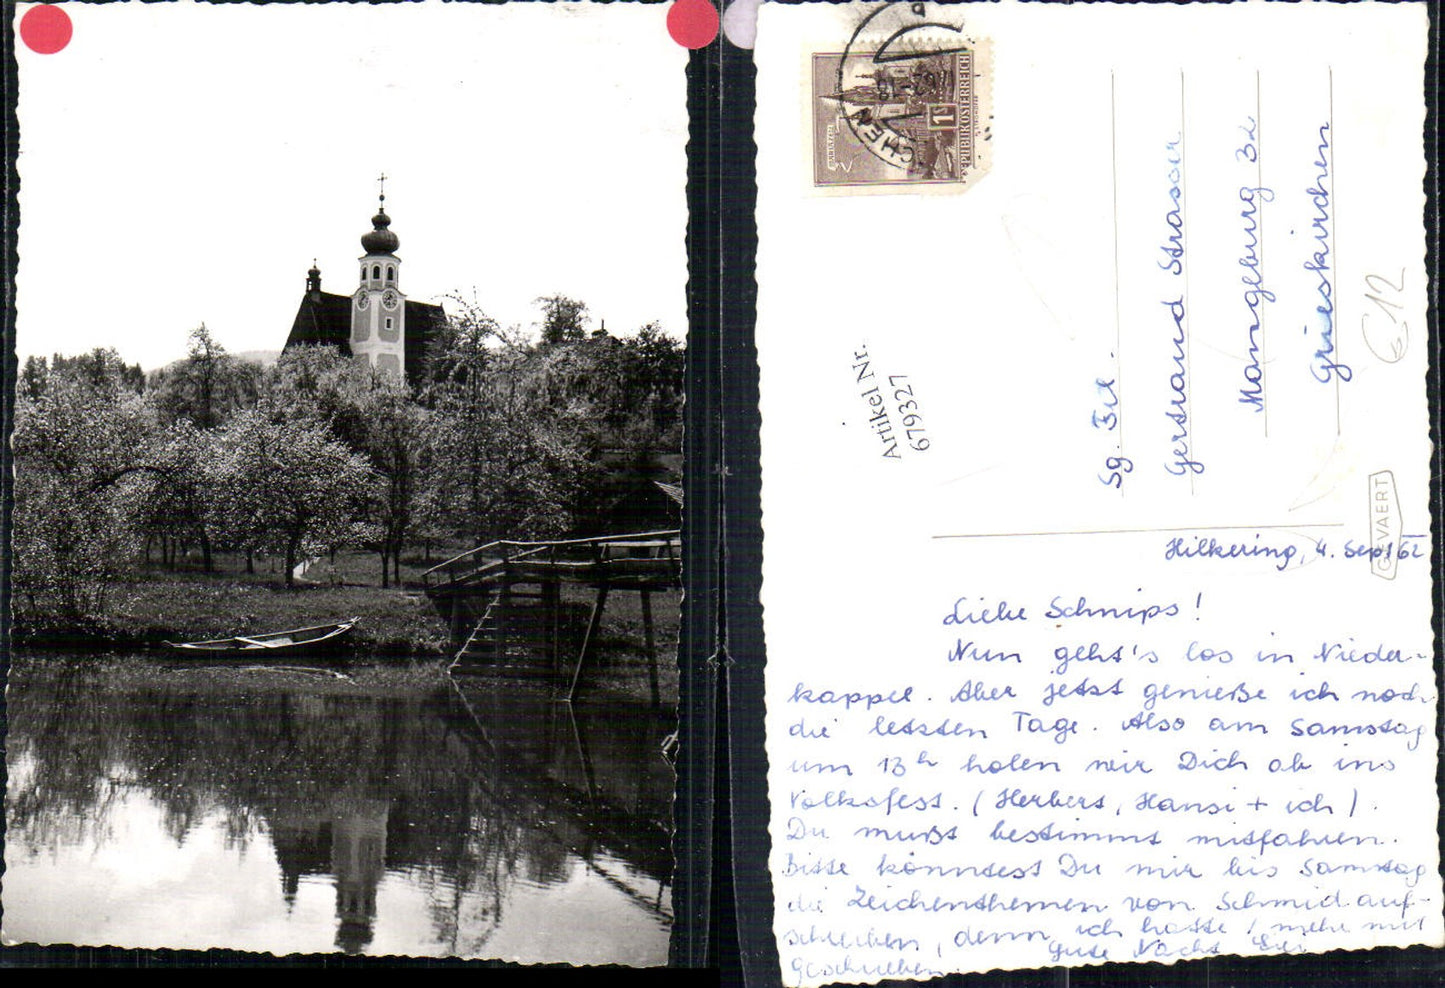 CHEN
62-18
1S
REPUBLIK ÖSTERREICH
MARIAZELL
Artikel Nr.
679327
Sg. Frl.
Gertraud Strasser
Manglburg 32
Grieskirchen
€12
GEVAERT
Hilkering, 4. Sept 62
Liebe Schnips!
Nun geht's los in Nieder-
kappel. Aber jetzt genieße ich noch
die letzten Tage. Also am Samstag
um 13h holen wir Dich ab ins
Volksfest. (Herbert, Hansi + ich).
Du mußt bestimmt mitfahren.
Bitte könntest Du mir bis Samstag
die Zeichenthemen von Schmid auf-
schreiben, denn ich hatte mit
geschrieben. Gute Nacht